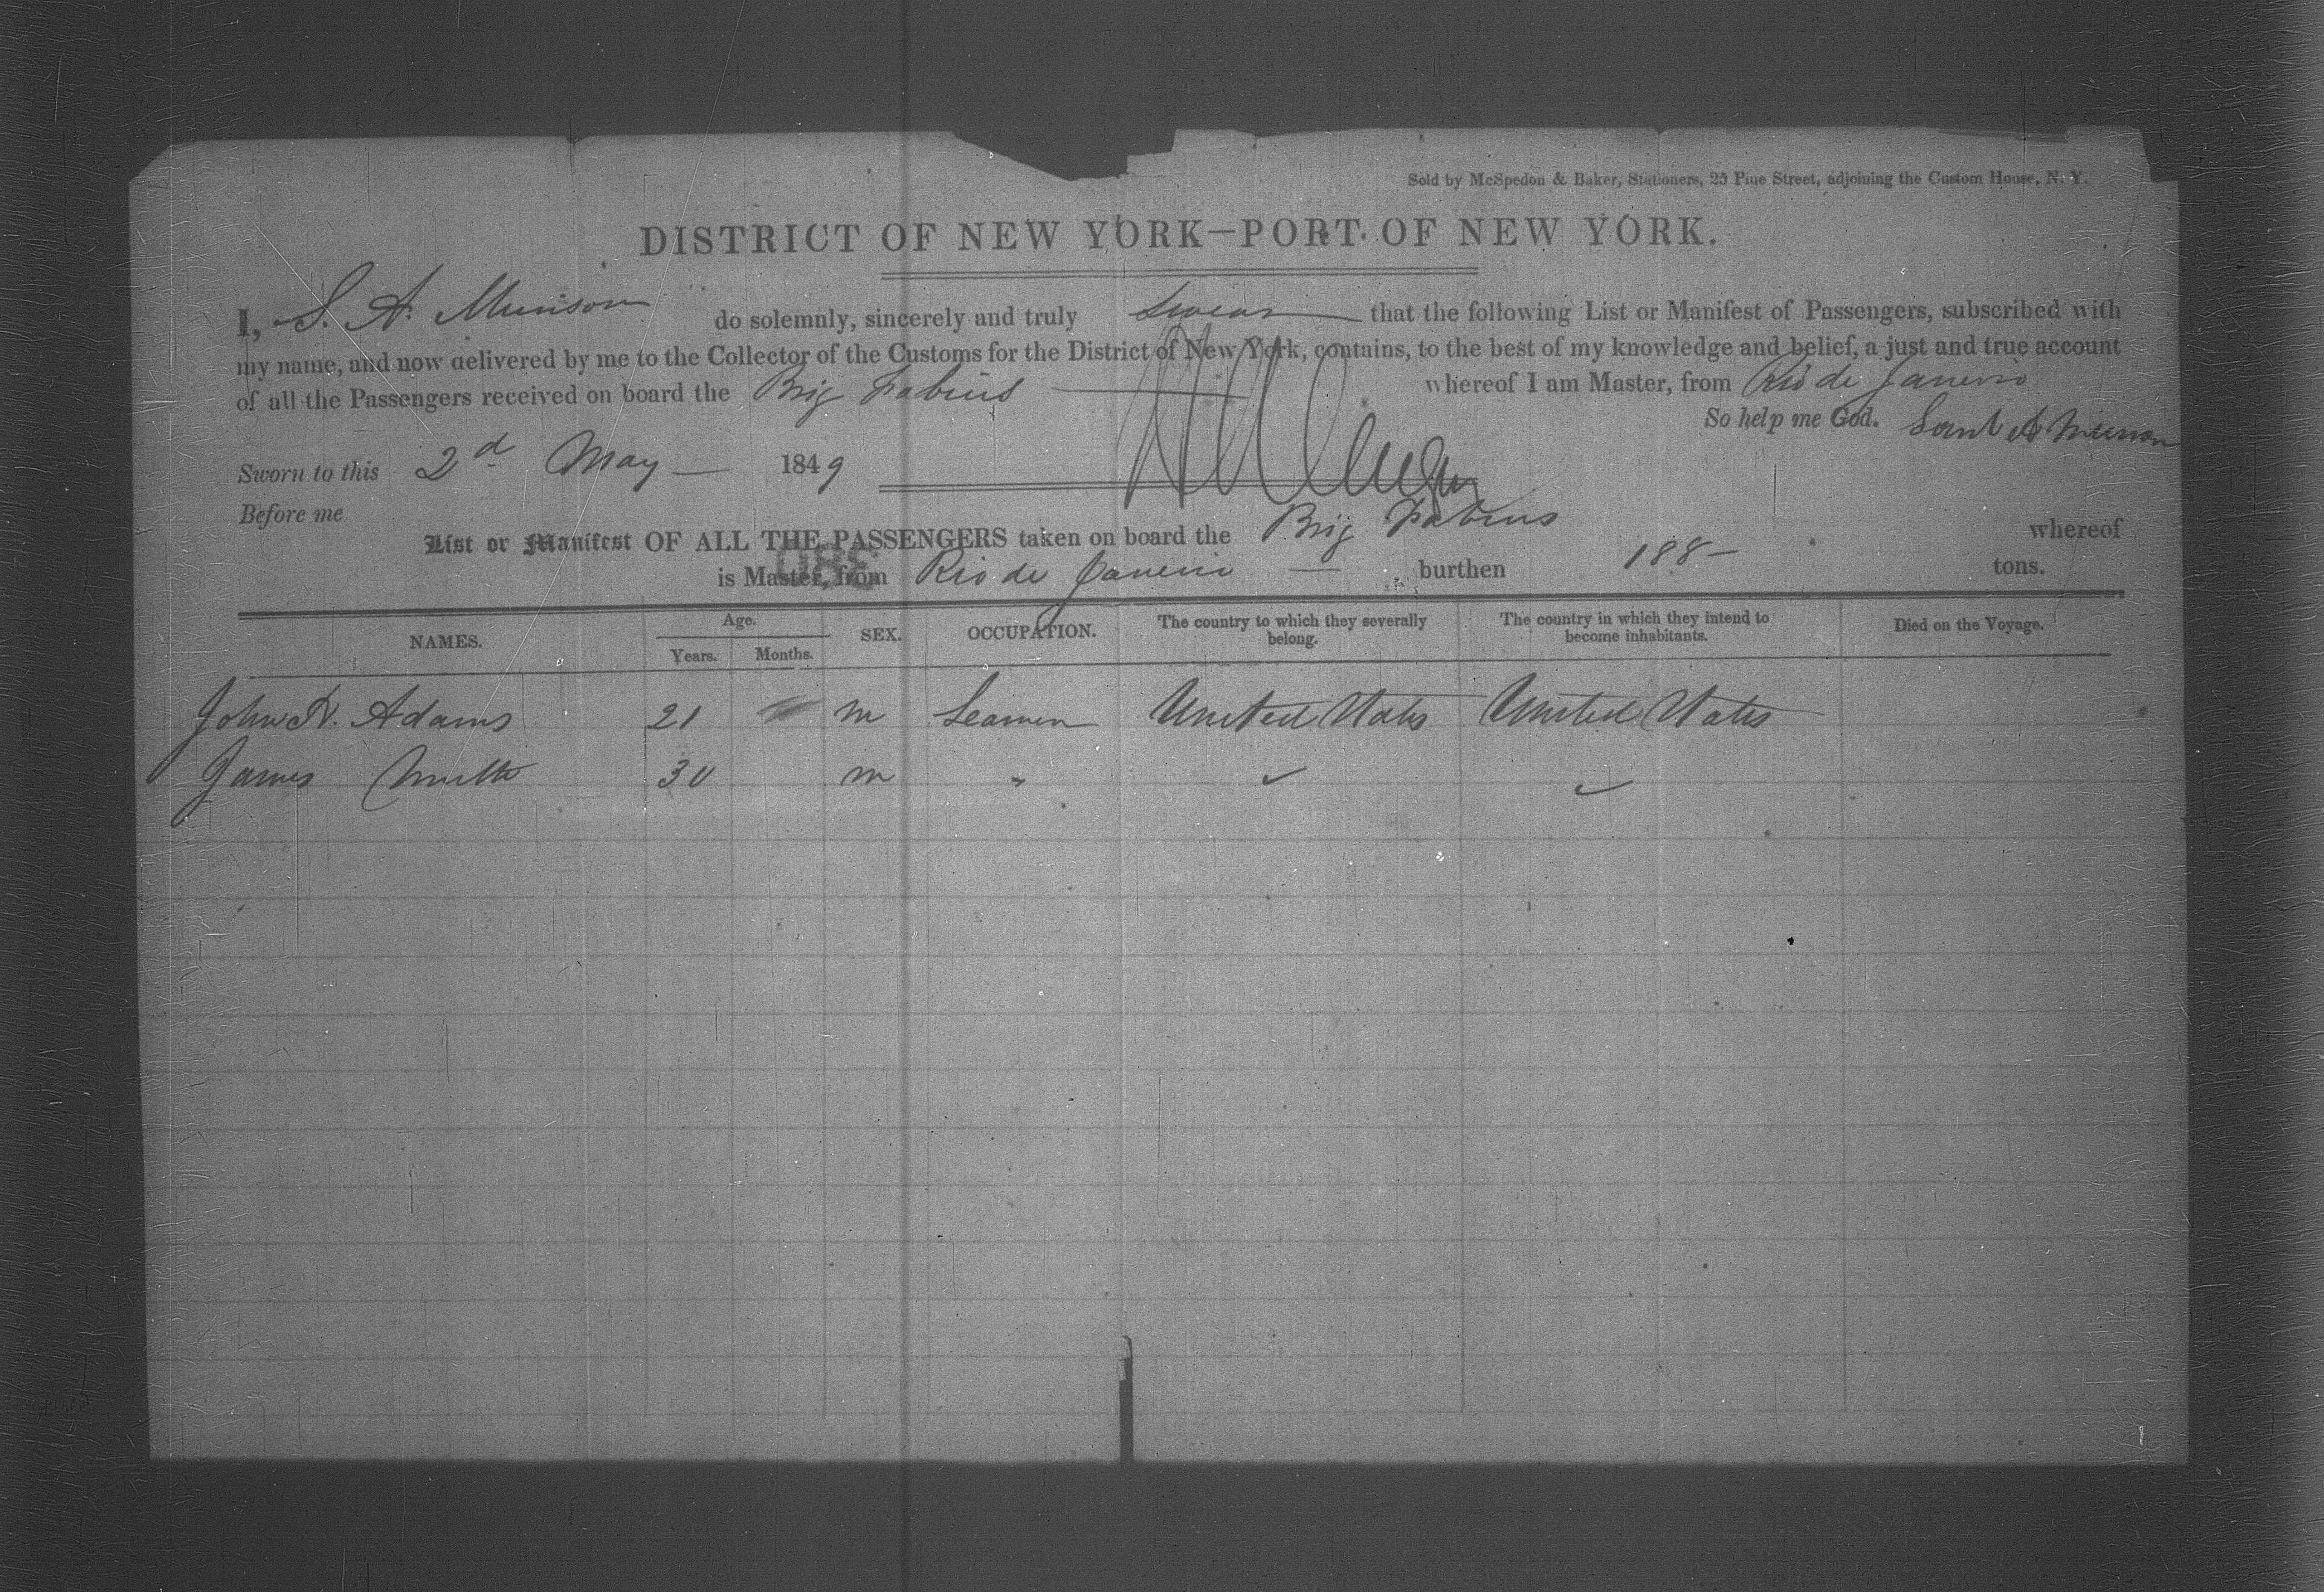 Sold by McSpedon & Baker, Stationers, 25 Pine Street, adjoining the Custom House, N. Y.
DISTRICT OF NEW YORK—PORT OF NEW YORK.
I, S. A. Munson do solemnly, sincerely and truly swear that the following List or Manifest of Passengers, subscribed with
my name, and now delivered by me to the Collector of the Customs for the District of New York, contains, to the best of my knowledge and belief, a just and true account
of all the Passengers received on board the Brig Fabius whereof I am Master, from Rio de Janeiro
So help me God. Saml A Munson
Sworn to this 2d May 1849
Before me
List or Manifest OF ALL THE PASSENGERS taken on board the Brig Fabius whereof
is Master, from Rio de Janeiro — burthen 188 — tons.
NAMES. Age. Years. Months. SEX. OCCUPATION. The country to which they severally belong. The country in which they intend to become inhabitants. Died on the Voyage.
John Adams 21 m Seamen United States United States
James Smith 30 m "